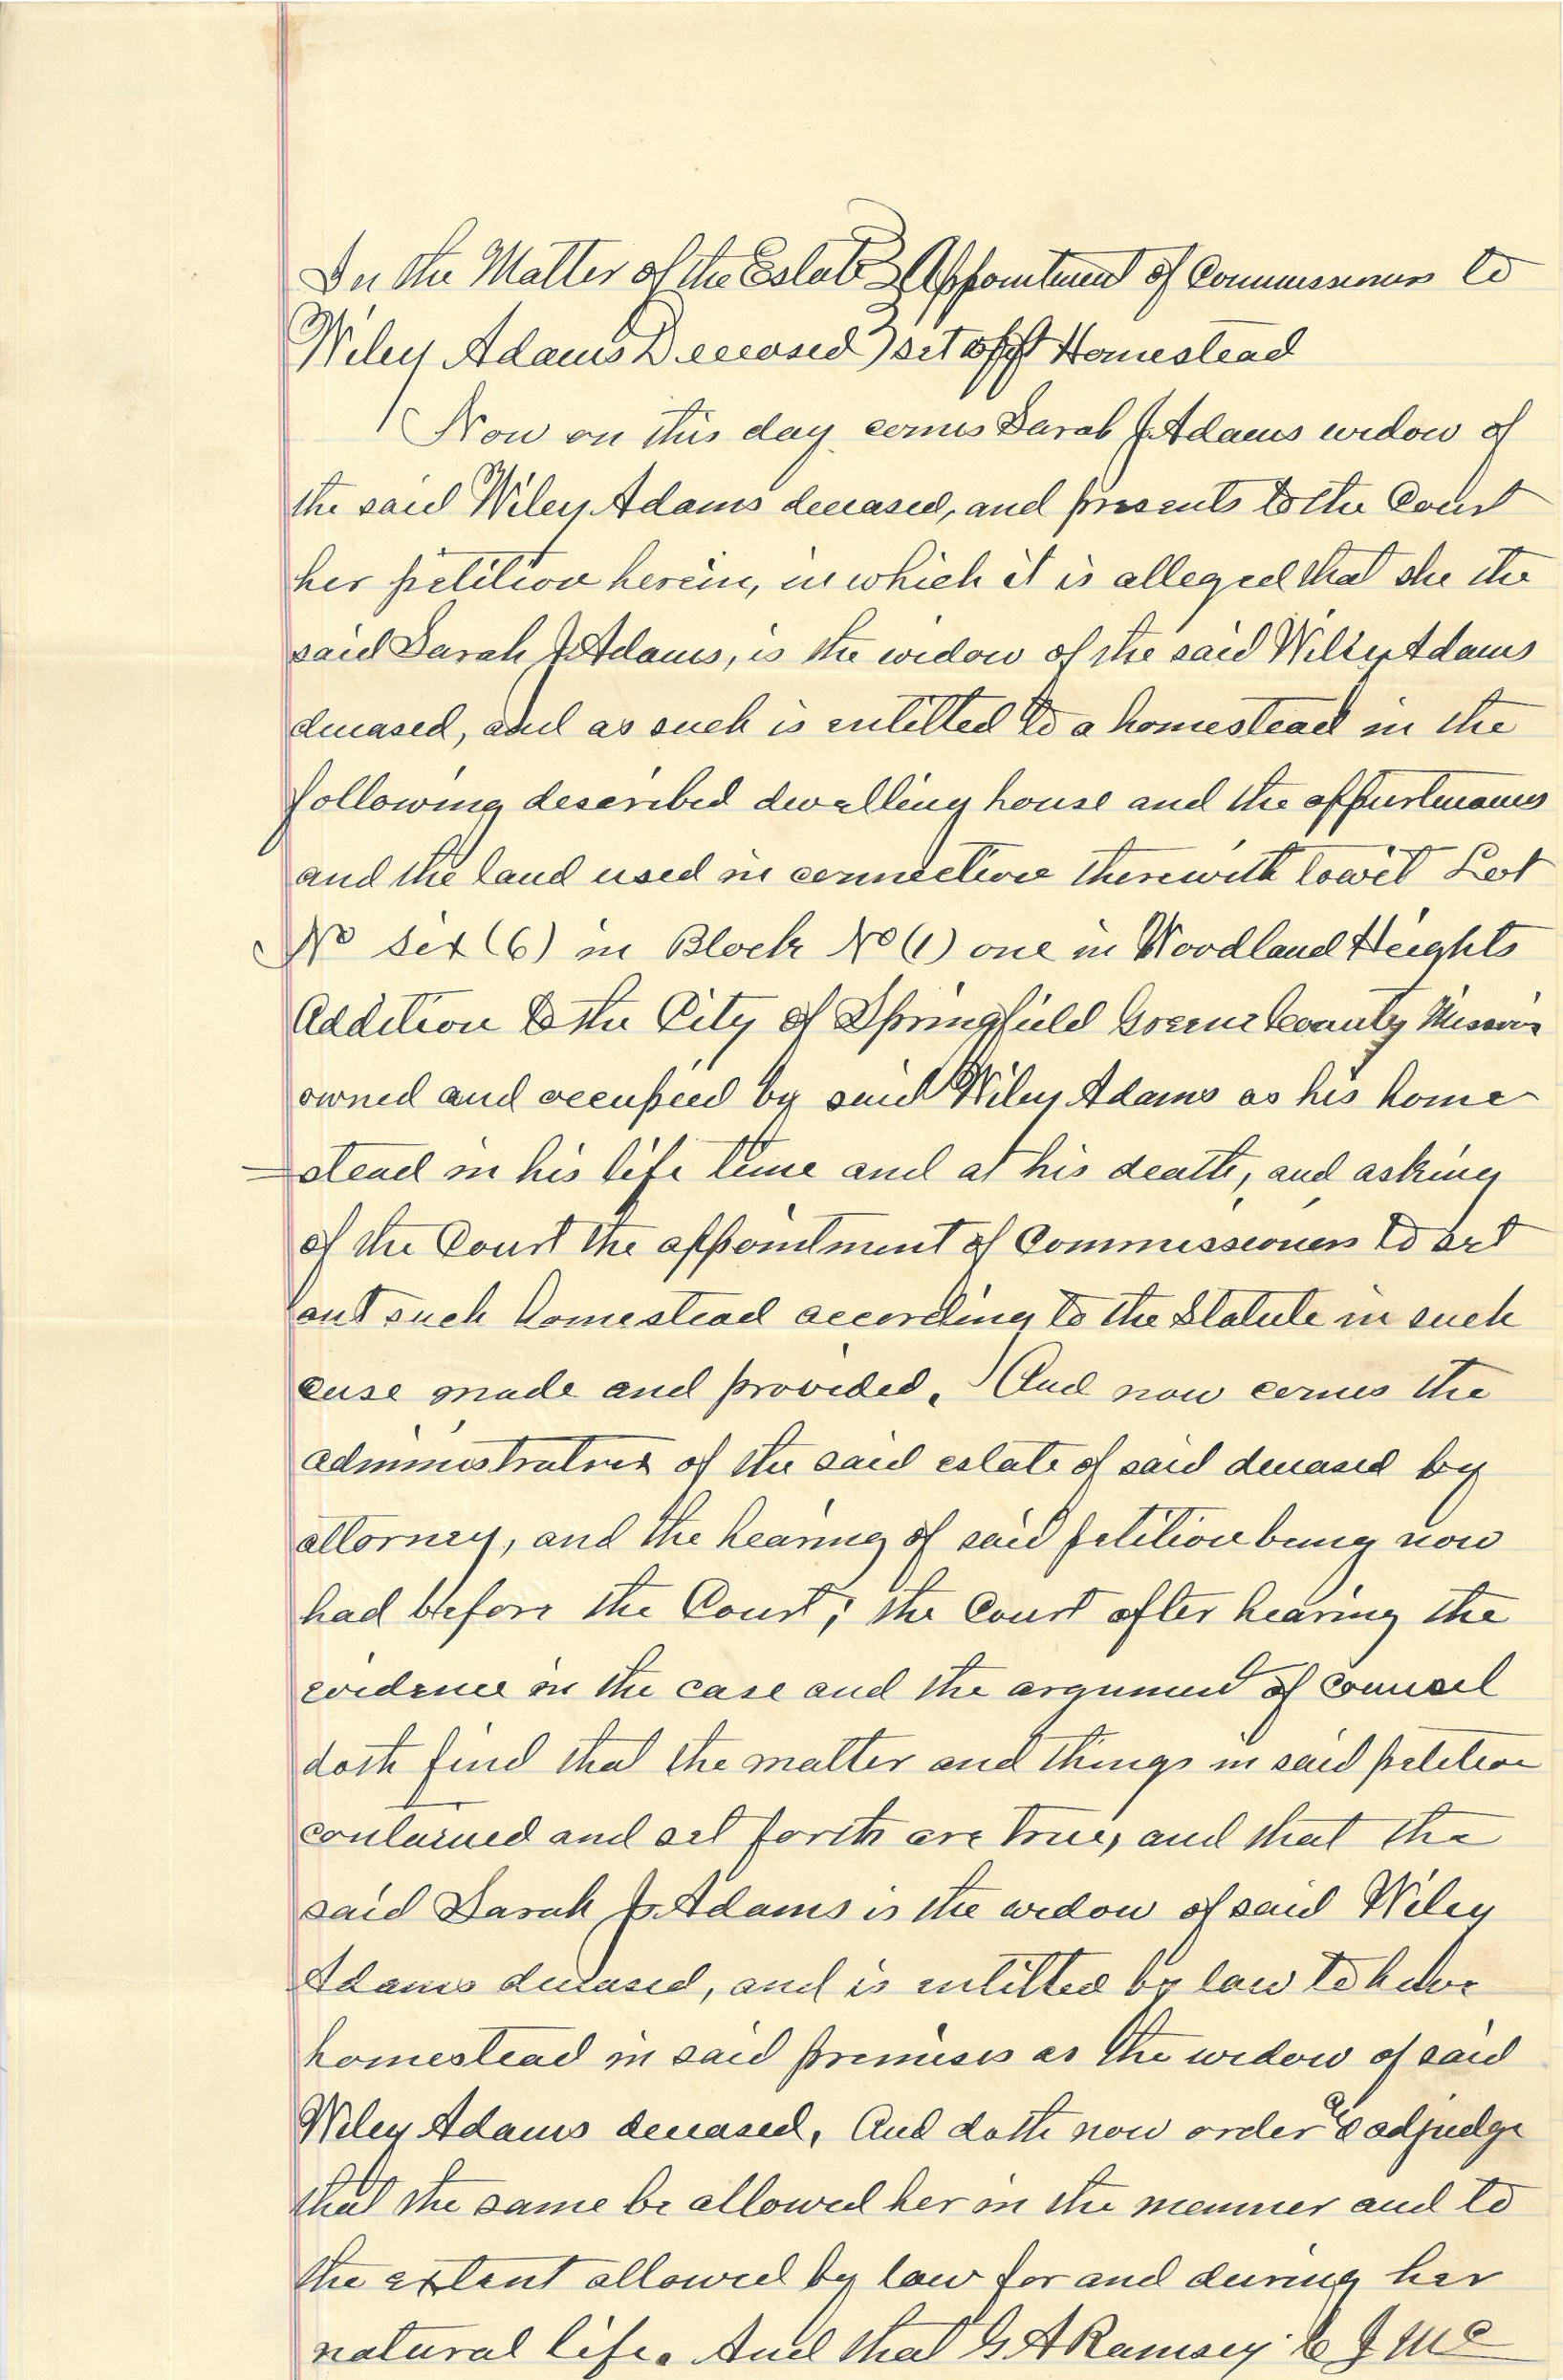 In the Matter of the Estate } Appointment of Commissioners to
Wiley Adams Deceased } set off Homestead
Now on this day comes Sarah J Adams widow of
the said Wiley Adams deceased, and presents to the Court
her petition herein, in which it is alleged that she the
said Sarah J Adams, is the widow of the said Wiley Adams
deceased, and as such is entitled to a homestead in the
following described dwelling house and the appurtenances
and the land used in connection therewith towit Lot
No Six (6) in Block No (1) one in Woodland Heights
Addition to the City of Springfield Greene County Missouri
owned and occupied by said Wiley Adams as his home
-stead in his life time and at his death, and asking
of the Court the appointment of Commissioners to set
out such homestead according to the Statute in such
case made and provided. And now comes the
administratrix of the said estate of said deceased by
attorney, and the hearing of said petition being now
had before the Court; the Court after hearing the
evidence in the case and the argument of counsel
doth find that the matter and things in said petition
contained and set forth are true, and that the
said Sarah J. Adams is the widow of said Wiley
Adams deceased, and is entitled by law to have
homestead in said premises as the widow of said
Wiley Adams deceased, And doth now order & adjudge
that the same be allowed her in the manner and to
the extent allowed by law for and during her
natural life. And that G A Ramsey